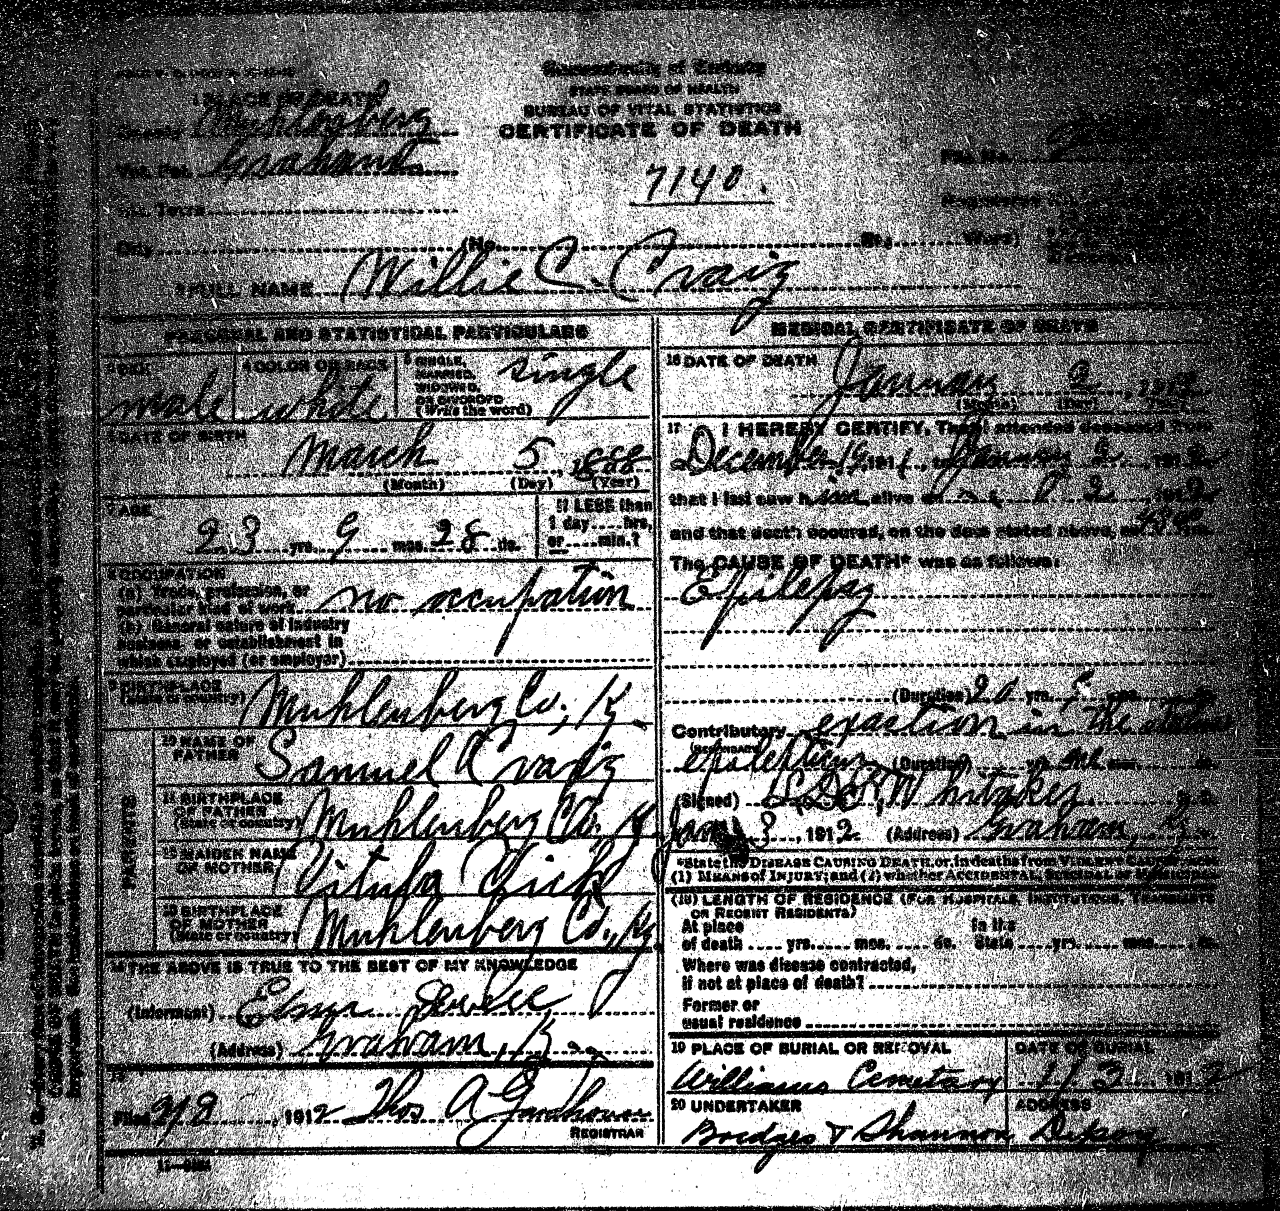 Commonwealth of Kentucky
STATE BOARD OF HEALTH
BUREAU OF VITAL STATISTICS
CERTIFICATE OF DEATH
1 PLACE OF DEATH
County Muhlenberg
Vot. Pct. Graham
File No.
7140.
Inc. Town
Registered
City (No. St., Ward)
2 FULL NAME Willie C. Craig
PERSONAL AND STATISTICAL PARTICULARS
3 SEX male
4 COLOR OR RACE white
5 SINGLE, MARRIED, WIDOWED, OR DIVORCED (Write the word) single
6 DATE OF BIRTH
March 5, 1888
(Month) (Day) (Year)
7 AGE
23 yrs. 9 mos. 28 ds.
If LESS than 1 day .... hrs, or .... min.?
8 OCCUPATION
(a) Trade, profession, or
particular kind of work no occupation
(b) General nature of industry
business, or establishment in
which employed (or employer)
9 BIRTHPLACE
(State or country) Muhlenberg Co., K
PARENTS
10 NAME OF FATHER Samuel Craig
11 BIRTHPLACE OF FATHER (State or country) Muhlenberg Co. Ky
12 MAIDEN NAME OF MOTHER
13 BIRTHPLACE OF MOTHER (State or country) Muhlenberg Co., Ky
14 THE ABOVE IS TRUE TO THE BEST OF MY KNOWLEDGE
(Informant)
(Address) Graham, K
15
Filed 2/8, 1912 Thos A
REGISTRAR
11—
MEDICAL CERTIFICATE OF DEATH
16 DATE OF DEATH
January 2, 1912
(Month) (Day) (Year)
17 I HEREBY CERTIFY, That I attended deceased from
December 19, 1911, January 2 1912
that I last saw him alive on 2, 1912
and that death occured, on the date stated above, at m.
The CAUSE OF DEATH* was as follows:
Epilepsy
(Duration) 20 yrs. mos. ds.
Contributory exaction in the
(SECONDARY)
epilepticus (Duration) yrs. mos. ds.
(Signed) Whitaker.
Jan 3, 1912. (Address) Graham, Ky
*State the DISEASE CAUSING DEATH, or, in deaths from VIOLENT CAUSES, state
(1) MEANS of INJURY; and (2) whether ACCIDENTAL, SUICIDAL or HOMICIDAL
(18) LENGTH OF RESIDENCE (FOR HOSPITALS, INSTITUTIONS, TRANSIENTS
OR RECENT RESIDENTS)
At place In the
of death .... yrs. .... mos. .... ds. State .... yrs. .... mos. .... ds.
Where was disease contracted,
if not at place of death?
Former or
usual residence
19 PLACE OF BURIAL OR REMOVAL DATE OF BURIAL
Williams Cemetary 1/3 1912
20 UNDERTAKER ADDRESS
Bridges & Shannon Depoy